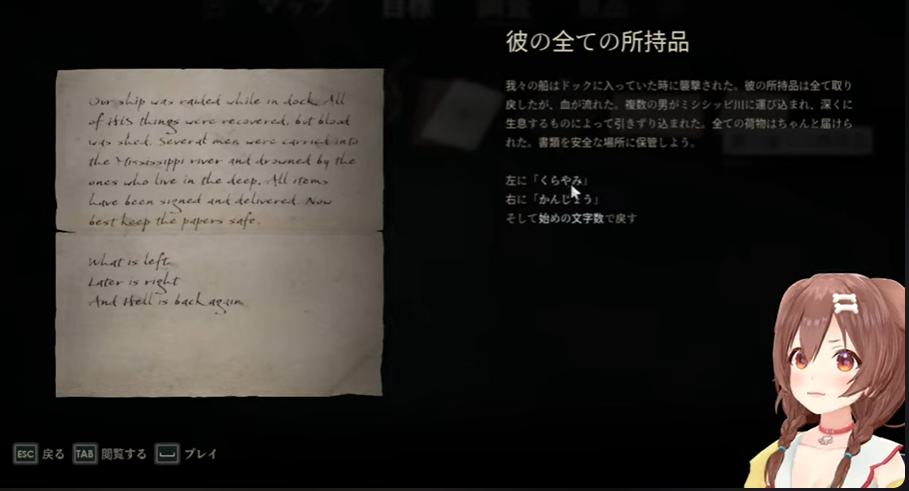 Our ship was raided while in dock. All
of HIS things were recovered, but blood
was shed. Several men were carried into
the Mississippi river and drowned by the
ones who live in the deep. All items
have been signed and delivered. Now
best keep the papers safe.
What is left,
Later is right
And Hell is back again
彼の全ての所持品
我々の船はドックに入っていた時に襲撃された。彼の所持品は全て取り
戻したが、血が流れた。複数の男がミシシッピ川に運び込まれ、深くに
生息するものによって引きずり込まれた。全ての荷物はちゃんと届けら
れた。書類を安全な場所に保管しよう。
左に「くらやみ」
右に「かんじょう」
そして始めの文字数で戻す
ESC 戻る TAB 閲覧する プレイ